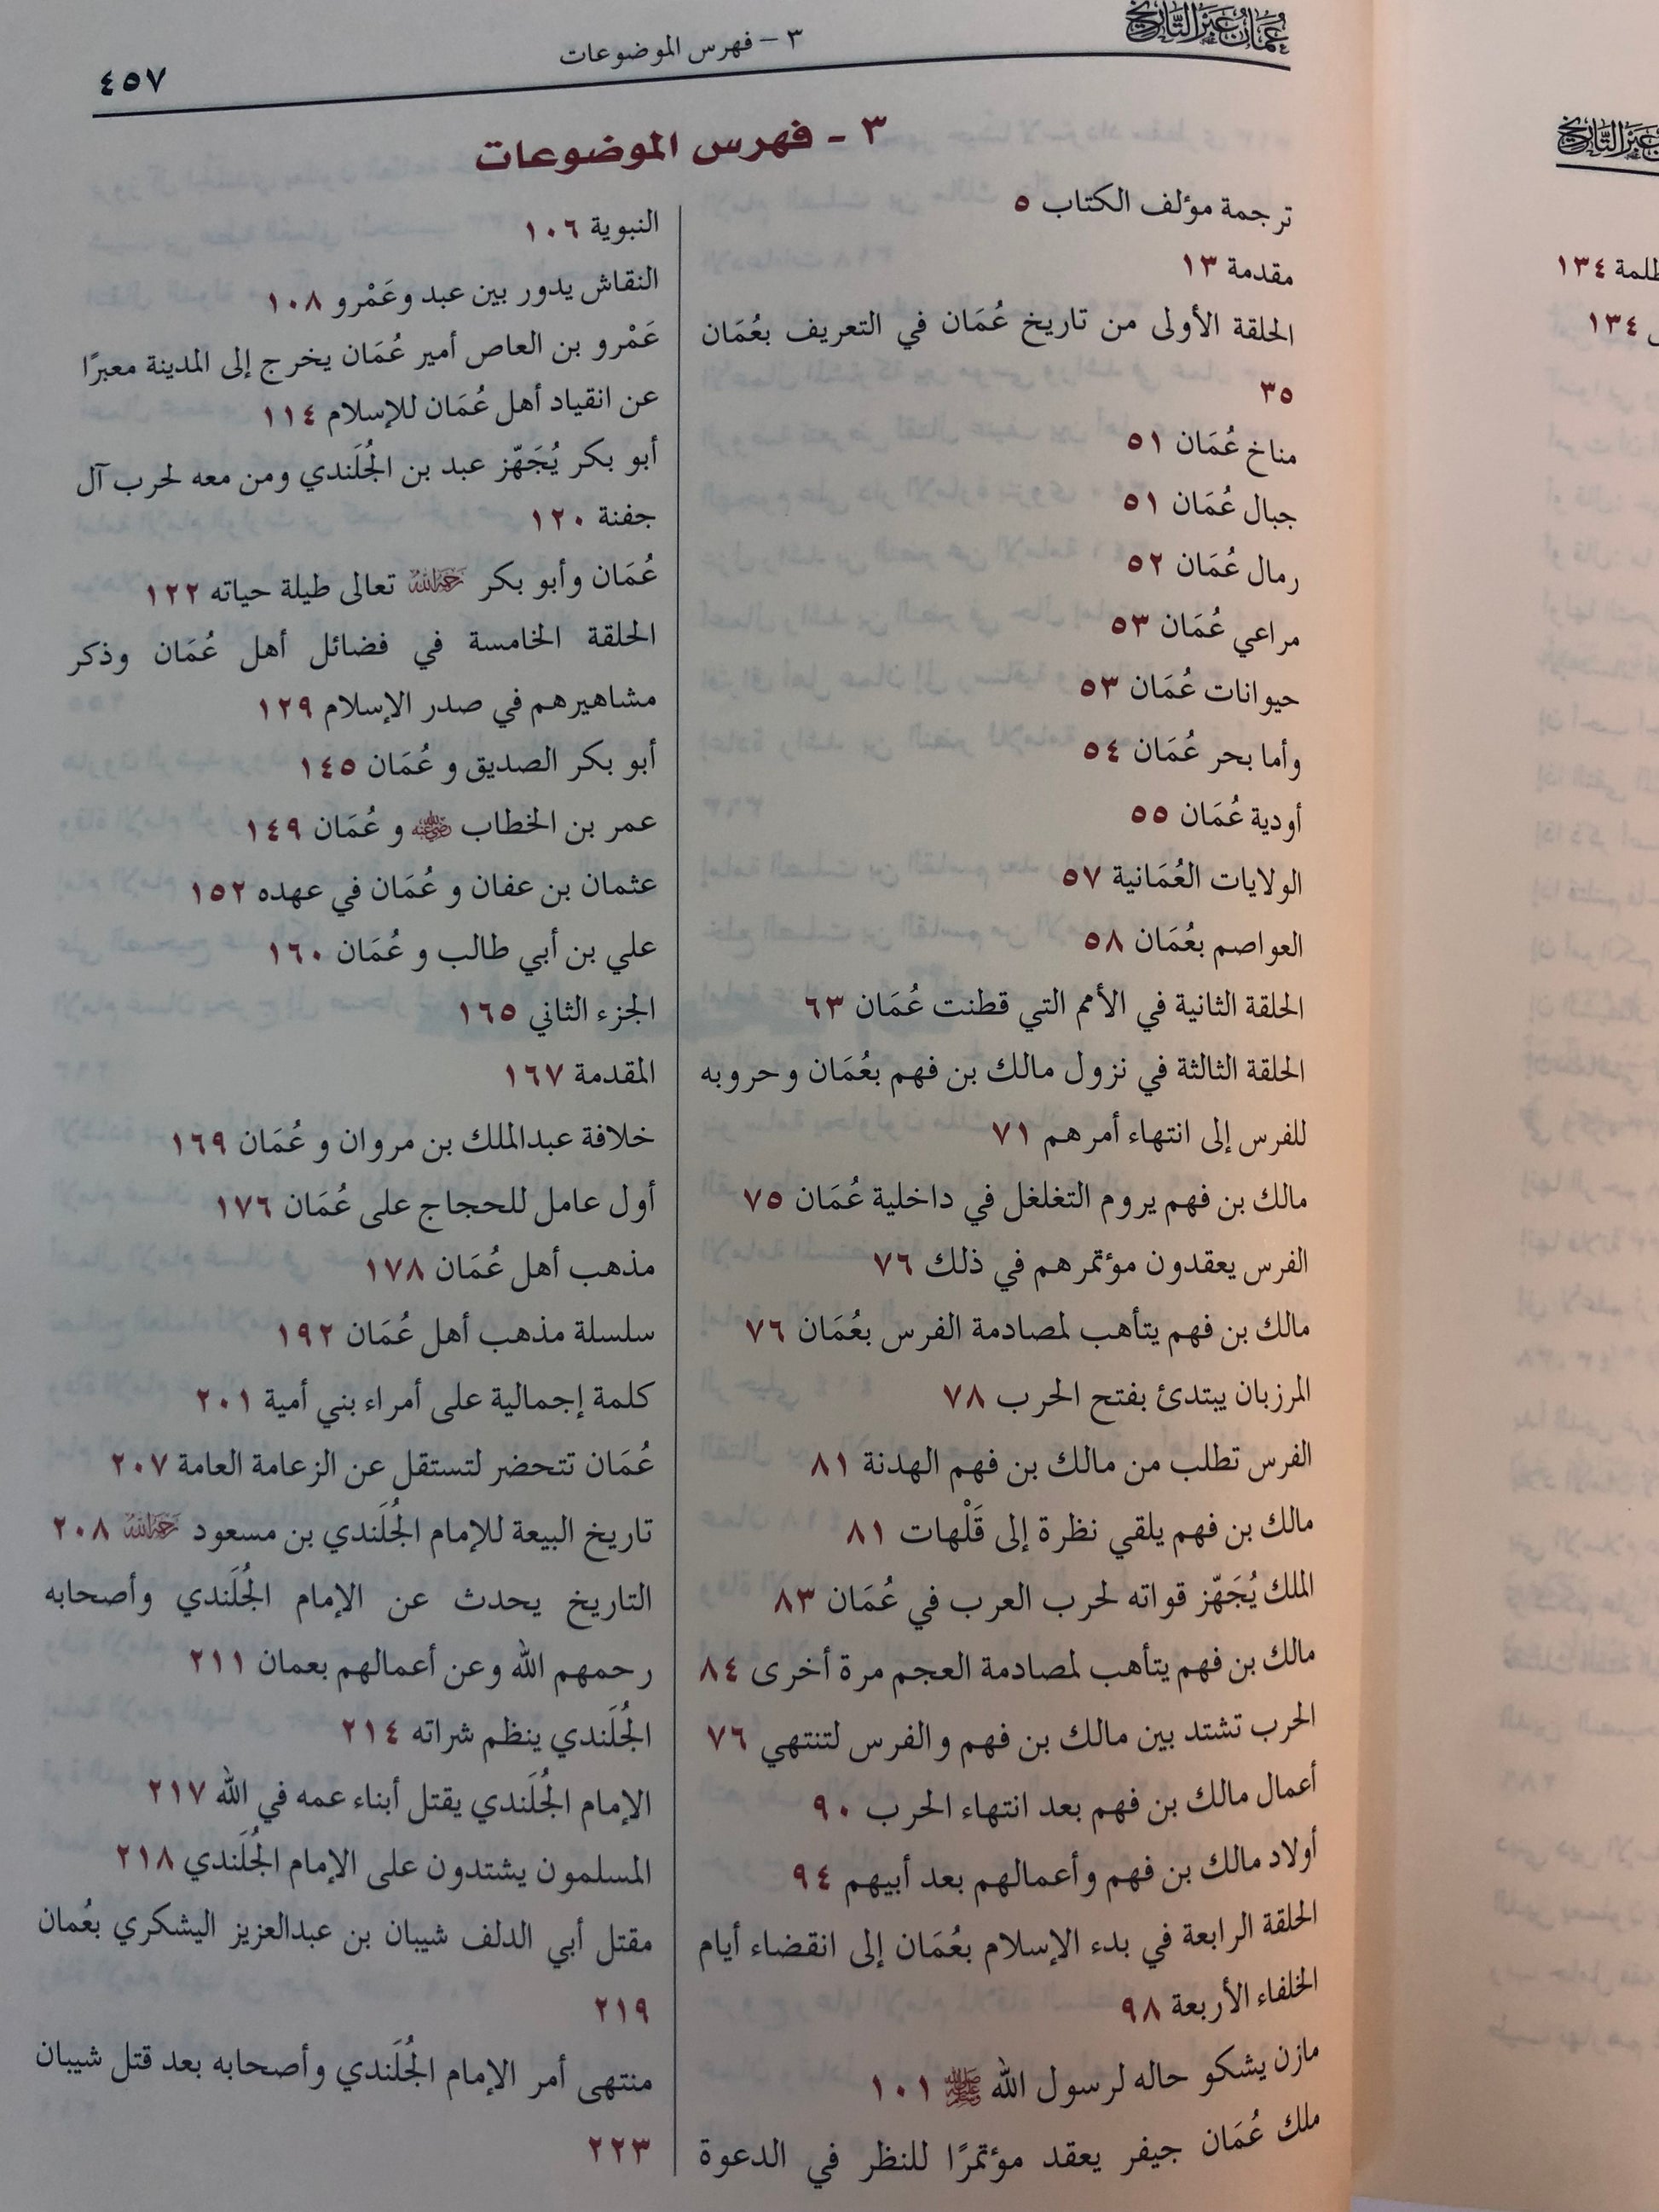 عُمَان عَبْرَ التَّارِيخ
٣ – فهرس الموضوعات
٤٥٧
٣ - فهرس الموضوعات
ترجمة مؤلف الكتاب ٥
مقدمة ١٣
الحلقة الأولى من تاريخ عُمَان في التعريف بعُمَان
٣٥
مناخ عُمَان ٥١
جبال عُمَان ٥١
رمال عُمَان ٥٢
مراعي عُمَان ٥٣
حيوانات عُمَان ٥٣
وأما بحر عُمَان ٥٤
أودية عُمَان ٥٥
الولايات العُمَانية ٥٧
العواصم بعُمَان ٥٨
الحلقة الثانية في الأمم التي قطنت عُمَان ٦٣
الحلقة الثالثة في نزول مالك بن فهم بعُمَان وحروبه
للفرس إلى انتهاء أمرهم ٧١
مالك بن فهم يروم التغلغل في داخلية عُمَان ٧٥
الفرس يعقدون مؤتمرهم في ذلك ٧٦
مالك بن فهم يتأهب لمصادمة الفرس بعُمَان ٧٦
المرزبان يبتدئ بفتح الحرب ٧٨
الفرس تطلب من مالك بن فهم الهدنة ٨١
مالك بن فهم يلقي نظرة إلى قَلْهات ٨١
الملك يُجَهّز قواته لحرب العرب في عُمَان ٨٣
مالك بن فهم يتأهب لمصادمة العجم مرة أخرى ٨٤
الحرب تشتد بين مالك بن فهم والفرس لتنتهي ٧٦
أعمال مالك بن فهم بعد انتهاء الحرب ٩٠
أولاد مالك بن فهم وأعمالهم بعد أبيهم ٩٤
الحلقة الرابعة في بدء الإسلام بعُمَان إلى انقضاء أيام
الخلفاء الأربعة ٩٨
مازن يشكو حاله لرسول الله ﷺ ١٠١
ملك عُمَان جيفر يعقد مؤتمرًا للنظر في الدعوة
النبوية ١٠٦
النقاش يدور بين عبد وعَمْرو ١٠٨
عَمْرو بن العاص أمير عُمَان يخرج إلى المدينة معبرًا
عن انقياد أهل عُمَان للإسلام ١١٤
أبو بكر يُجَهّز عبد بن الجُلَندي ومن معه لحرب آل
جفنة ١٢٠
عُمَان وأبو بكر رَحِمَهُ اللهُ تعالى طيلة حياته ١٢٢
الحلقة الخامسة في فضائل أهل عُمَان وذكر
مشاهيرهم في صدر الإسلام ١٢٩
أبو بكر الصديق و عُمَان ١٤٥
عمر بن الخطاب رضي الله عنه و عُمَان ١٤٩
عثمان بن عفان و عُمَان في عهده ١٥٢
علي بن أبي طالب و عُمَان ١٦٠
الجزء الثاني ١٦٥
المقدمة ١٦٧
خلافة عبدالملك بن مروان و عُمَان ١٦٩
أول عامل للحجاج على عُمَان ١٧٦
مذهب أهل عُمَان ١٧٨
سلسلة مذهب أهل عُمَان ١٩٢
كلمة إجمالية على أمراء بني أمية ٢٠١
عُمَان تتحضر لتستقل عن الزعامة العامة ٢٠٧
تاريخ البيعة للإمام الجُلَندي بن مسعود رَحِمَهُ اللهُ ٢٠٨
التاريخ يحدث عن الإمام الجُلَندي وأصحابه
رحمهم الله وعن أعمالهم بعمان ٢١١
الجُلَندي ينظم شراته ٢١٤
الإمام الجُلَندي يقتل أبناء عمه في الله ٢١٧
المسلمون يشتدون على الإمام الجُلَندي ٢١٨
مقتل أبي الدلف شيبان بن عبدالعزيز اليشكري بعُمان
٢١٩
منتهى أمر الإمام الجُلَندي وأصحابه بعد قتل شيبان
٢٢٣
عَبْرَ التَّارِيخ
١٣٤
١٣٤